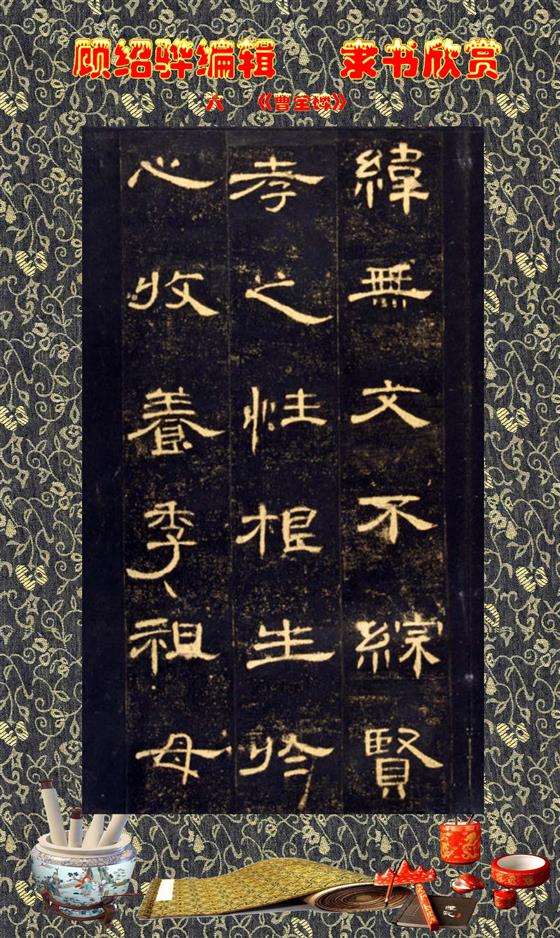 顾绍骅编辑 隶书欣赏
六 《曹全碑》
緯無文不綜賢
孝之性根生於
心收養季祖母